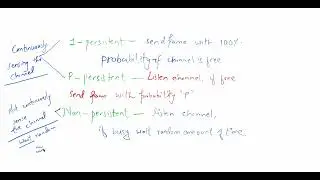 Continuously
sensing the
channel
1-persistent — send frame with 100%
probability if channel is free
P-persistent — Listen channel, if free
send frame with probability "P"
Not continuously
sense
the channel
Wait random
Non-persistent — Listen channel,
if busy wait random amount of time.